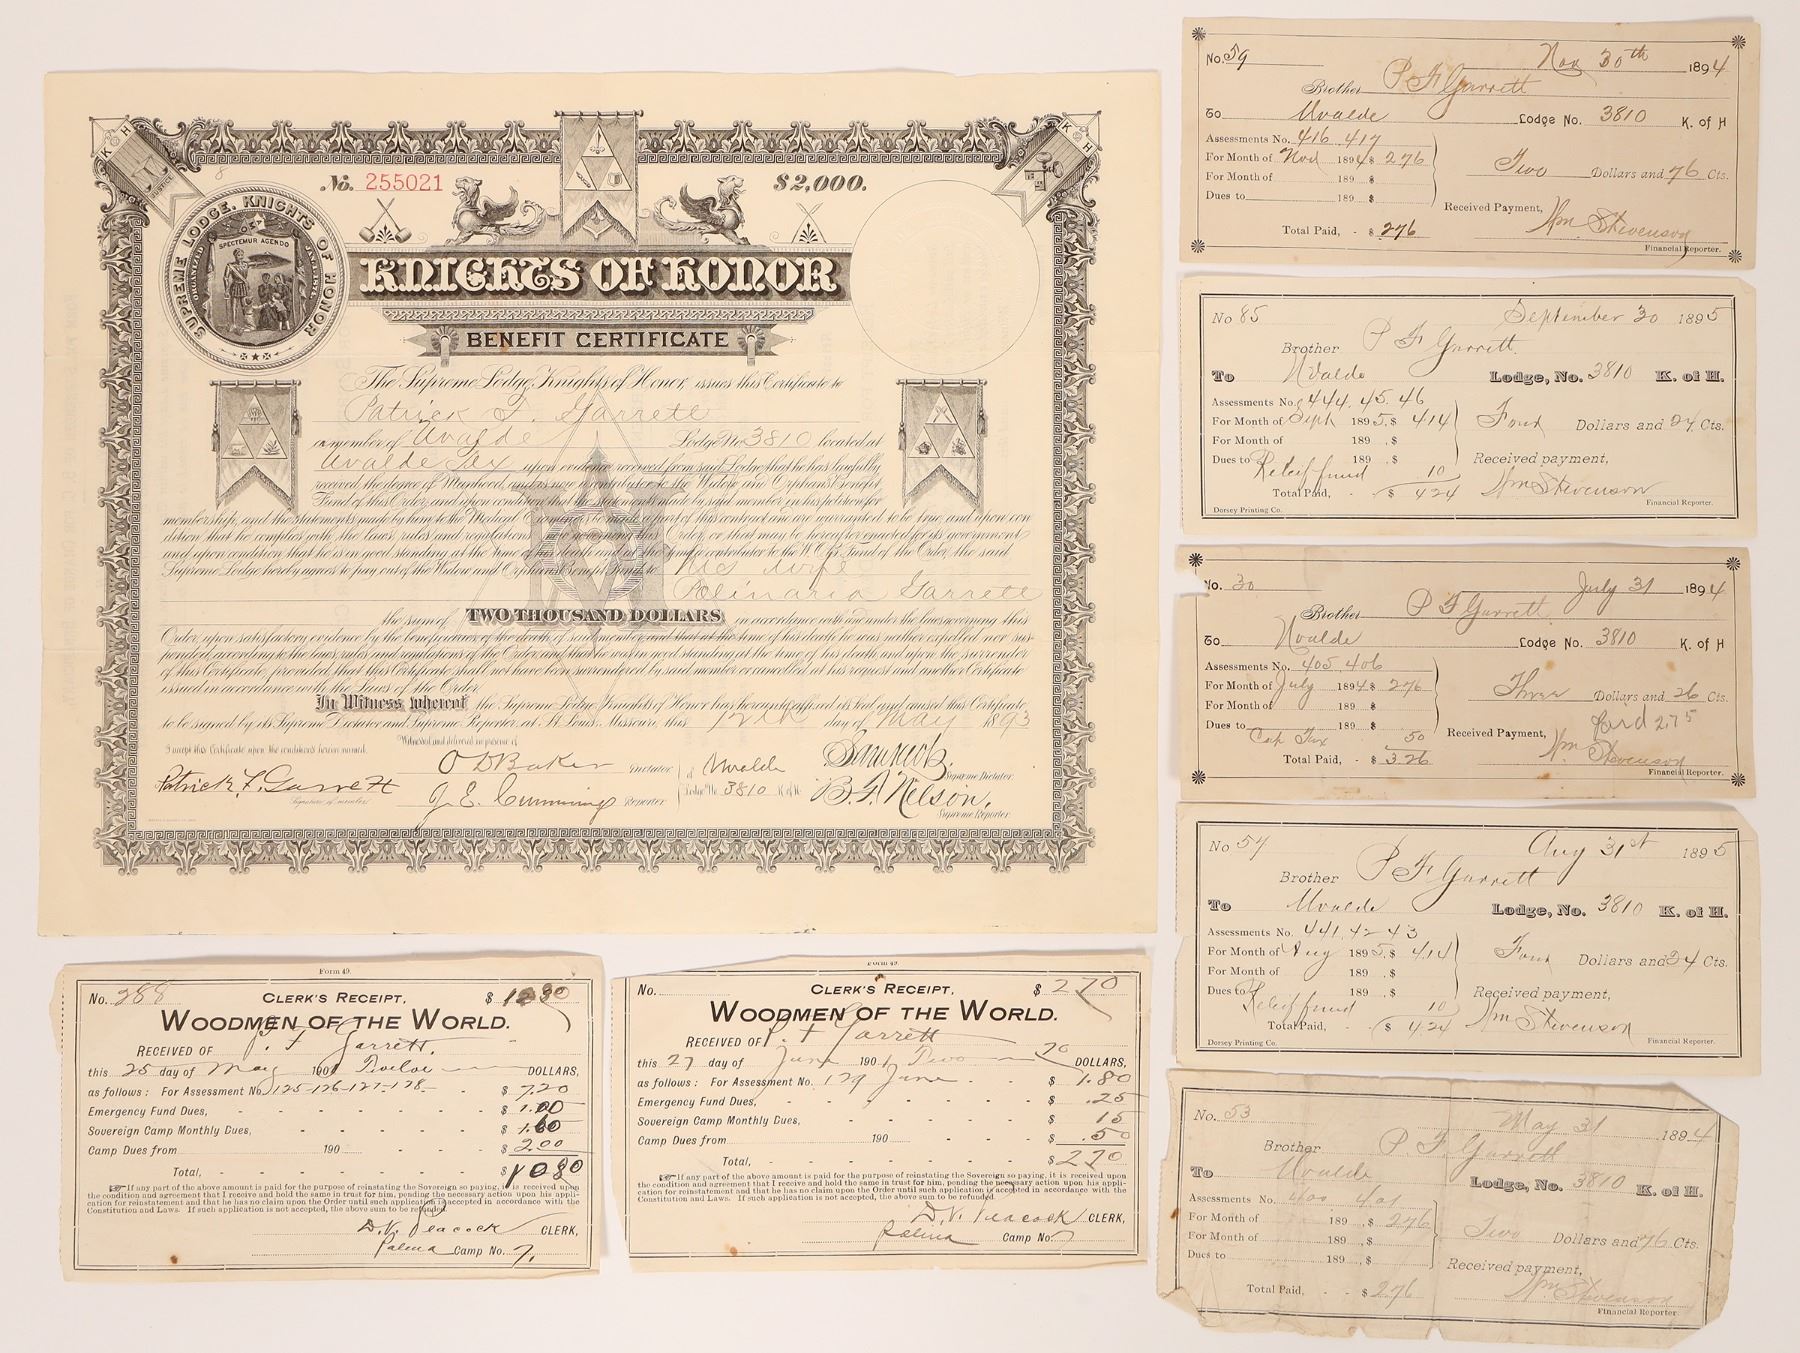 No. 255021
$2,000.
SUPREME LODGE, KNIGHTS OF HONOR
SPECTEMUR AGENDO
KNIGHTS OF HONOR
BENEFIT CERTIFICATE
The Supreme Lodge, Knights of Honor, issues this Certificate to
Patrick F. Garrett
a member of Uvalde Lodge No 3810 located at
Uvalde Tex upon evidence received from said Lodge that he has lawfully
received the degree of Manhood, and is now a contributor to the Widow and Orphans Benefit
Fund of this Order; and upon condition that the statements made by said member in his petition for
membership, and the statements made by him to the Medical Examiner be made a part of this contract and are warranted to be true, and upon con
dition that he complies with the laws, rules and regulations now governing this Order, or that may be hereafter enacted for its government
and upon condition that he is in good standing at the time of his death and at the time a contributor to the W.O.B. Fund of the Order, the said
Supreme Lodge hereby agrees to pay out of the Widow and Orphans Benefit Fund to his wife
Polinaria Garrett
the sum of TWO THOUSAND DOLLARS in accordance with and under the laws governing this
Order, upon satisfactory evidence by the beneficiaries of the death of said member, and that at the time of his death he was neither expelled nor sus-
pended, according to the laws, rules and regulations of the Order, and that he was in good standing at the time of his death, and upon the surrender
of this Certificate, provided, that this Certificate shall not have been surrendered by said member or cancelled at his request and another Certificate
issued in accordance with the Laws of the Order.
In Witness whereof the Supreme Lodge Knights of Honor has hereunto affixed its seal and caused this Certificate
to be signed by its Supreme Dictator and Supreme Reporter at St. Louis, Missouri, this 12th day of May 1893
I accept this Certificate upon the conditions herein named.
Witnessed and delivered in presence of
Patrick F. Garrett
Signature of member
O D Baker Dictator
J. E. Cummings Reporter
of Uvalde
Lodge No. 3810 K of H.
Supreme Dictator
B. F. Nelson,
Supreme Reporter.
No. 59 Nov 30th 1894
Brother P F Garrett
To Uvalde Lodge No. 3810 K. of H
Assessments No. 416 417
For Month of Nov 1894 $ 2 76
For Month of 189 $
Dues to 189 $
Two Dollars and 76 Cts.
Received Payment,
Total Paid, - $ 2 76
Wm Stevenson
Financial Reporter.
No 85 September 30 1895
Brother P F Garrett.
To Uvalde Lodge, No. 3810 K. of H.
Assessments No. 444. 45. 46
For Month of Sept 1895, $ 4 14
For Month of 189 , $
Dues to 189 , $
Relief fund 10
Four Dollars and 24 Cts.
Received payment,
Total Paid, - $ 4 24
Wm Stevenson
Financial Reporter.
Dorsey Printing Co.
No. 30 July 31 1894
Brother P F Garrett
To Uvalde Lodge No. 3810 K. of H
Assessments No. 405, 406
For Month of July 1894 $ 2 76
For Month of 189 $
Dues to 189 $
50
Three Dollars and 26 Cts.
Received Payment,
Total Paid, - $ 3.26
Wm. Stevenson
Financial Reporter.
No 57 Aug 31st 1895
Brother P F Garrett
To Uvalde Lodge, No. 3810 K. of H.
Assessments No. 441, 42 43
For Month of Aug 1895, $ 4 14
For Month of 189 , $
Dues to 189 , $
Relief fund 10
Four Dollars and 24 Cts.
Received payment,
Total Paid, - $ 4 24
Wm Stevenson
Financial Reporter.
Dorsey Printing Co.
No. 53 May 31 1894
Brother P. F. Garrett
To Uvalde Lodge, No. 3810 K. of H.
Assessments No. 400 401
For Month of 189 , $ 2 76
For Month of 189 , $
Dues to 189 , $
Two Dollars and 76 Cts.
Received payment,
Total Paid, - - $ 2 76
Wm Stevenson
Financial Reporter.
Form 49.
No. 288 CLERK'S RECEIPT, $
WOODMEN OF THE WORLD.
RECEIVED OF P. F Garrett.
this 25 day of May 1901 Twelve DOLLARS,
as follows: For Assessment No. 125-126-127-128- $ 7.20
Emergency Fund Dues, $ 1.00
Sovereign Camp Monthly Dues, $ 1.60
Camp Dues from 190 $ 2.00
Total, $ 10 80
If any part of the above amount is paid for the purpose of reinstating the Sovereign so paying, it is received upon
the condition and agreement that I receive and hold the same in trust for him, pending the necessary action upon his appli-
cation for reinstatement and that he has no claim upon the Order until such application is accepted in accordance with the
Constitution and Laws. If such application is not accepted, the above sum to be refunded.
D. V. Peacock CLERK,
Palma Camp No. 7,
Form 49.
No. CLERK'S RECEIPT, $ 2 70
WOODMEN OF THE WORLD.
RECEIVED OF P. F Garrett
this 27 day of June 1901 Two 70 DOLLARS,
as follows: For Assessment No. 129 June $ 1.80
Emergency Fund Dues, $ .25
Sovereign Camp Monthly Dues, $ 15
Camp Dues from 190 $ .50
Total, $ 2 70
If any part of the above amount is paid for the purpose of reinstating the Sovereign so paying, it is received upon
the condition and agreement that I receive and hold the same in trust for him, pending the necessary action upon his appli-
cation for reinstatement and that he has no claim upon the Order until such application is accepted in accordance with the
Constitution and Laws. If such application is not accepted, the above sum to be refunded.
D. V. Peacock CLERK,
Palma Camp No. 7